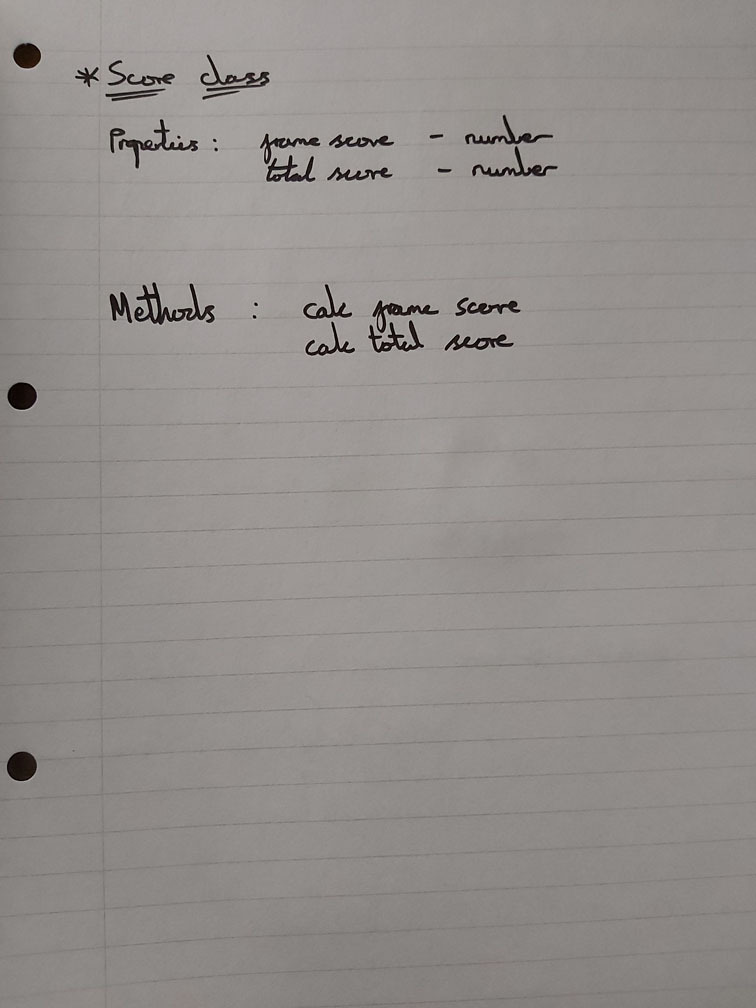 * Score class
Properties : frame score - number
total score - number
Methods : calc frame score
calc total score